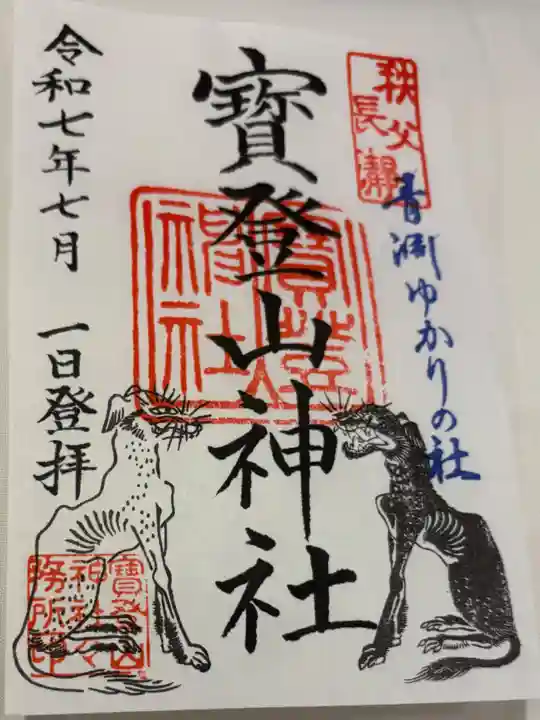 秩父
長瀞
青渊ゆかりの社
寳登山神社
寳登山
神社
令和七年七月
一日登拝
寳登山
神社々
務所印